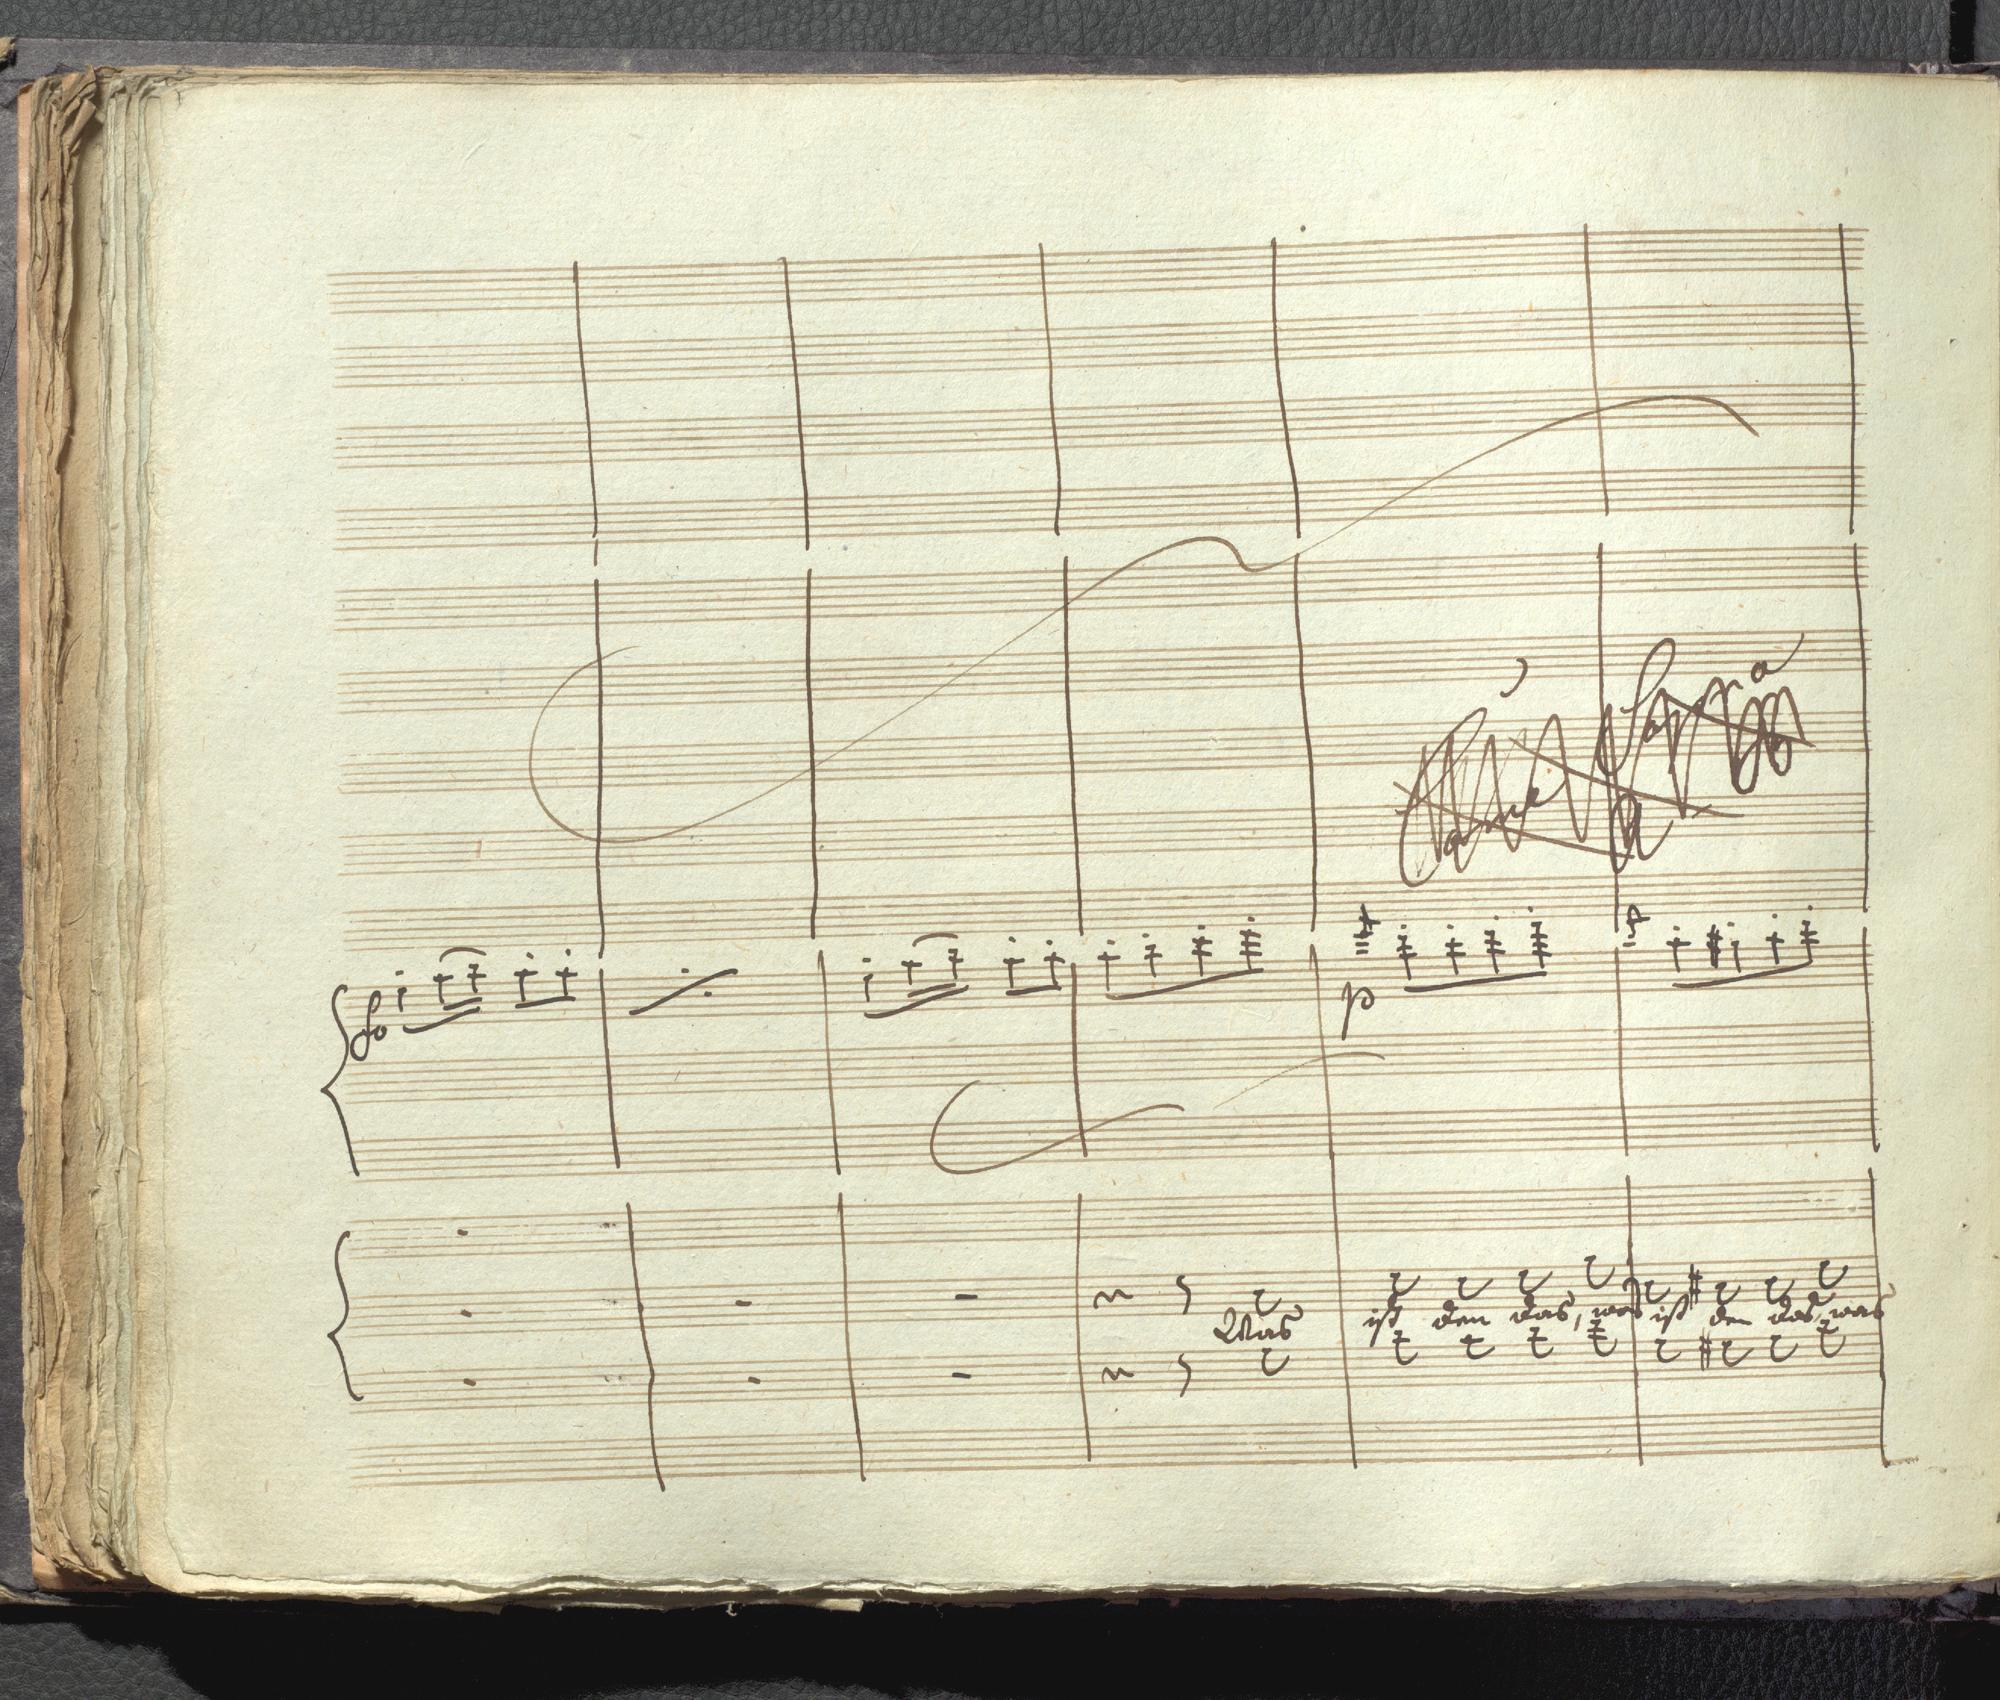 fo
p
Was ist den das, was ist den das, was